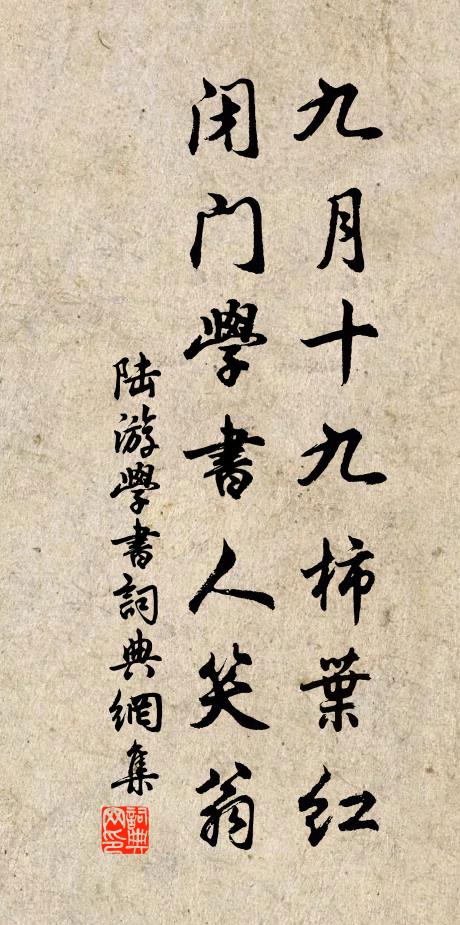 九月十九柿葉红
闭门學書人笑翁
陆游學書詞典網集
詞典网印